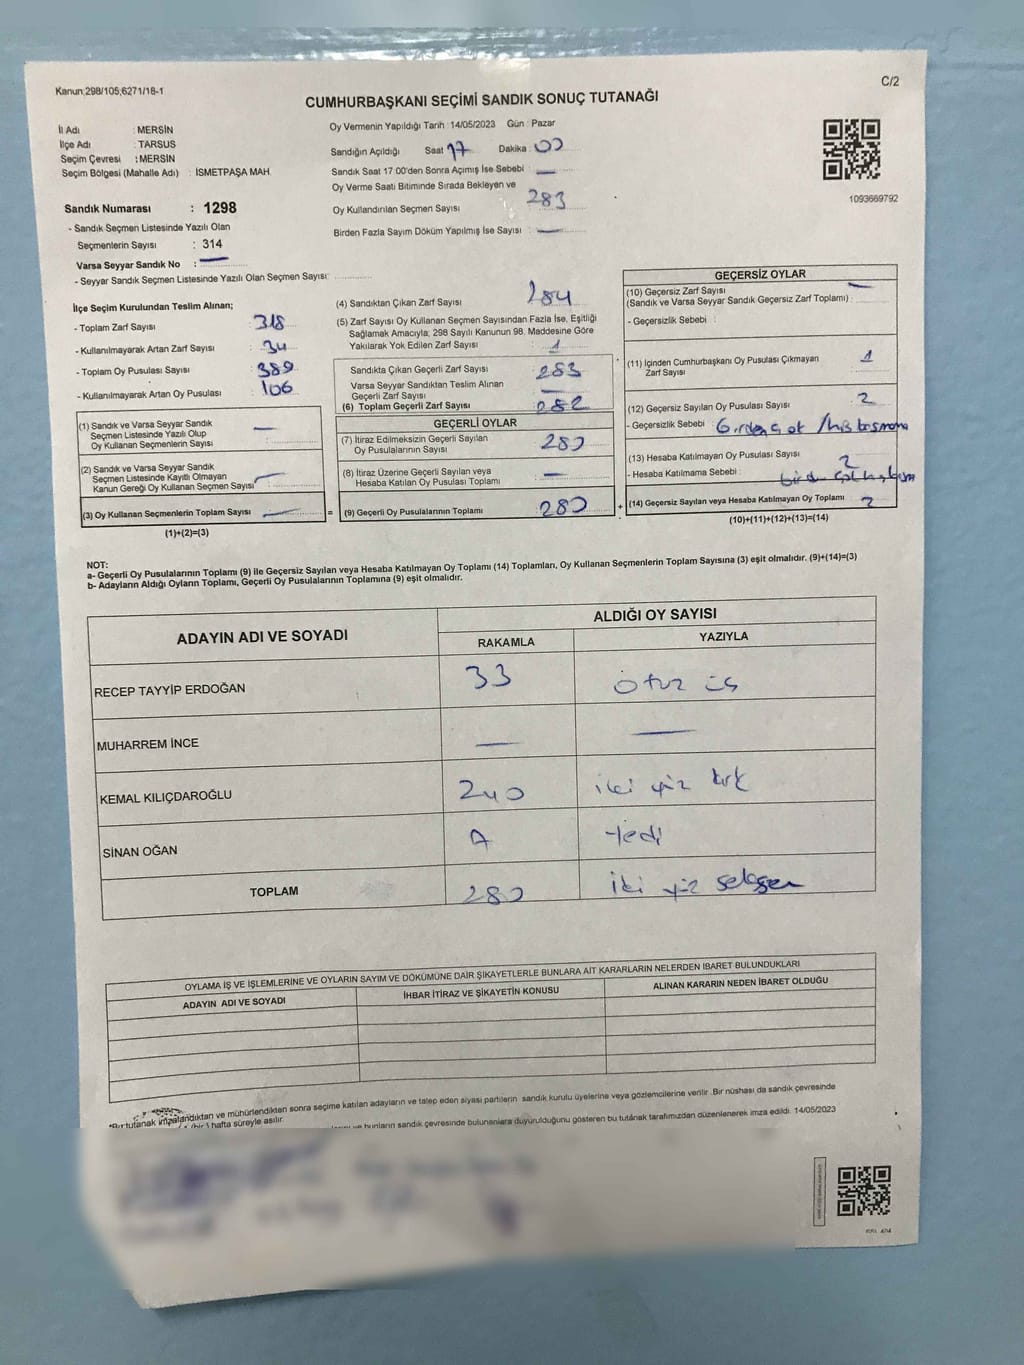 Kanun:298/105,6271/18-1
C/2
CUMHURBAŞKANI SEÇİMİ SANDIK SONUÇ TUTANAĞI
İl Adı : MERSİN
İlçe Adı : TARSUS
Seçim Çevresi : MERSİN
Seçim Bölgesi (Mahalle Adı) : İSMETPAŞA MAH.
Oy Vermenin Yapıldığı Tarih : 14/05/2023 Gün : Pazar
Sandığın Açıldığı Saat 17 Dakika : 00
Sandık Saat 17.00'den Sonra Açımış İse Sebebi : —
Oy Verme Saati Bitiminde Sırada Bekleyen ve
Oy Kullandırılan Seçmen Sayısı 283
Birden Fazla Sayım Döküm Yapılmış İse Sayısı : —
1093669792
Sandık Numarası : 1298
- Sandık Seçmen Listesinde Yazılı Olan
Seçmenlerin Sayısı : 314
Varsa Seyyar Sandık No : —
- Seyyar Sandık Seçmen Listesinde Yazılı Olan Seçmen Sayısı:
İlçe Seçim Kurulundan Teslim Alınan;
- Toplam Zarf Sayısı : 318
- Kullanılmayarak Artan Zarf Sayısı : 34
- Toplam Oy Pusulası Sayısı : 389
- Kullanılmayarak Artan Oy Pusulası : 106
(1) Sandık ve Varsa Seyyar Sandık
Seçmen Listesinde Yazılı Olup
Oy Kullanan Seçmenlerin Sayısı : —
(2) Sandık ve Varsa Seyyar Sandık
Seçmen Listesinde Kayıtlı Olmayan
Kanun Gereği Oy Kullanan Seçmen Sayısı : —
(3) Oy Kullanan Seçmenlerin Toplam Sayısı : —
(1)+(2)=(3)
(4) Sandıktan Çıkan Zarf Sayısı : 284
(5) Zarf Sayısı Oy Kullanan Seçmen Sayısından Fazla İse, Eşitliği
Sağlamak Amacıyla; 298 Sayılı Kanunun 98. Maddesine Göre
Yakılarak Yok Edilen Zarf Sayısı : 1
Sandıkta Çıkan Geçerli Zarf Sayısı : 283
Varsa Seyyar Sandıktan Teslim Alınan
Geçerli Zarf Sayısı : —
(6) Toplam Geçerli Zarf Sayısı : 282
GEÇERLİ OYLAR
(7) İtiraz Edilmeksizin Geçerli Sayılan
Oy Pusulasının Sayısı : 280
(8) İtiraz Üzerine Geçerli Sayılan veya
Hesaba Katılan Oy Pusulası Toplamı : —
= (9) Geçerli Oy Pusulalarının Toplamı : 280
GEÇERSİZ OYLAR
(10) Geçersiz Zarf Sayısı —
(Sandık ve Varsa Seyyar Sandık Geçersiz Zarf Toplamı) :
- Geçersizlik Sebebi :
(11) İçinden Cumhurbaşkanı Oy Pusulası Çıkmayan
Zarf Sayısı : 1
(12) Geçersiz Sayılan Oy Pusulası Sayısı : 2
- Geçersizlik Sebebi :
(13) Hesaba Katılmayan Oy Pusulası Sayısı : 2
- Hesaba Katılmama Sebebi :
+ (14) Geçersiz Sayılan veya Hesaba Katılmayan Oy Toplamı
(10)+(11)+(12)+(13)=(14)
NOT:
a- Geçerli Oy Pusulalarının Toplamı (9) ile Geçersiz Sayılan veya Hesaba Katılmayan Oy Toplamı (14) Toplamları, Oy Kullanan Seçmenlerin Toplam Sayısına (3) eşit olmalıdır. (9)+(14)=(3)
b- Adayların Aldığı Oyların Toplamı, Geçerli Oy Pusulalarının Toplamına (9) eşit olmalıdır.
ADAYIN ADI VE SOYADI
ALDIĞI OY SAYISI
RAKAMLA YAZIYLA
RECEP TAYYİP ERDOĞAN 33 otuz üç
MUHARREM İNCE — —
KEMAL KILIÇDAROĞLU 240 iki yüz kırk
SİNAN OĞAN 7 Yedi
TOPLAM 280 iki yüz seksen
OYLAMA İŞ VE İŞLEMLERİNE VE OYLARIN SAYIM VE DÖKÜMÜNE DAİR ŞİKAYETLERLE BUNLARA AİT KARARLARIN NELERDEN İBARET BULUNDUKLARI
ADAYIN ADI VE SOYADI İHBAR İTİRAZ VE ŞİKAYETİN KONUSU ALINAN KARARIN NEDEN İBARET OLDUĞU
*Bu tutanak imzalandıktan ve mühürlendikten sonra seçime katılan adayların ve talep eden siyasi partilerin sandık kurulu üyelerine veya gözlemcilerine verilir. Bir nüshası da sandık çevresinde
hafta süreyle asılır.
bunların sandık çevresinde bulunanlara duyurulduğunu gösteren bu tutanak tarafımızdan düzenlenerek imza edildi. 14/05/2023